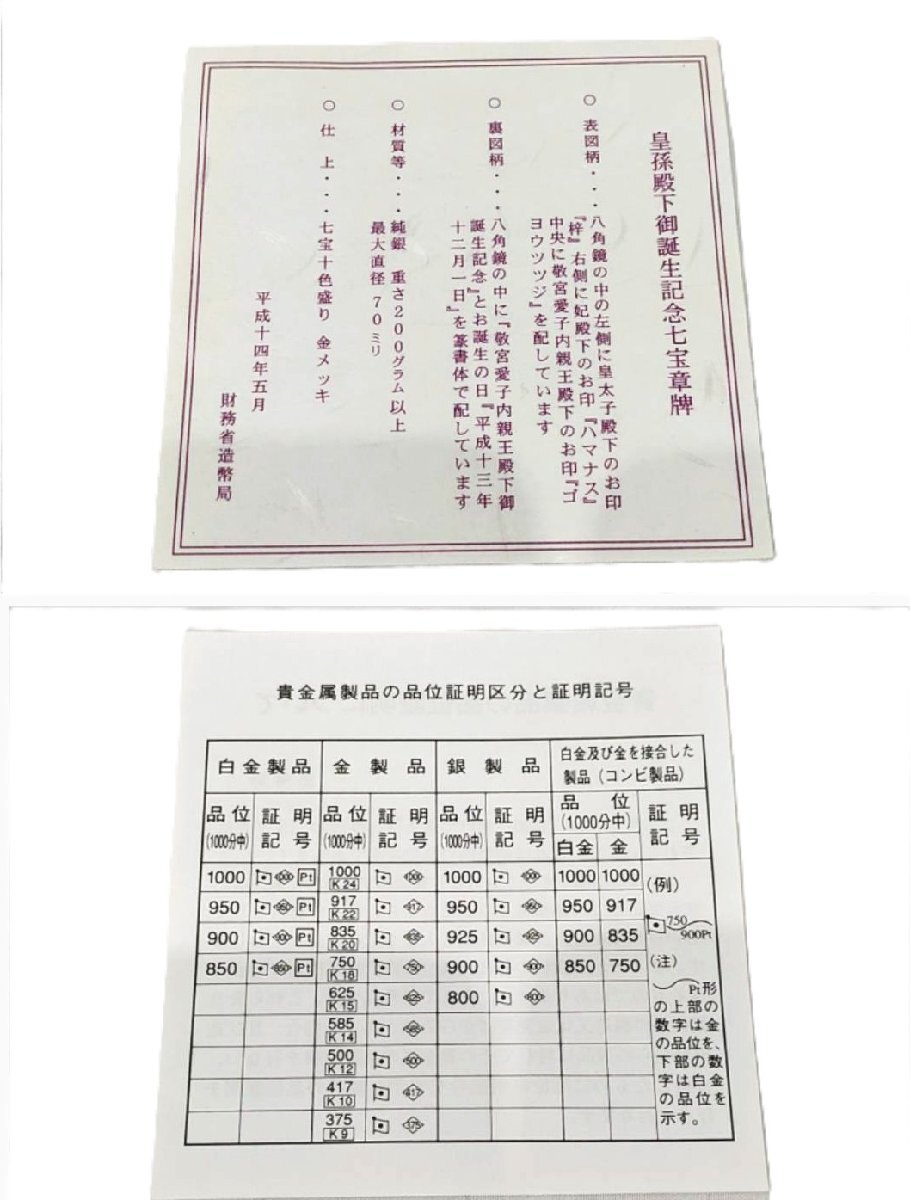 皇孫殿下御誕生記念七宝章牌
○ 表図柄・・・八角鏡の中の左側に皇太子殿下のお印
『梓』右側に妃殿下のお印『ハマナス』
中央に敬宮愛子内親王殿下のお印『ゴ
ヨウツツジ』を配しています
○ 裏図柄・・・八角鏡の中に『敬宮愛子内親王殿下御
誕生記念』とお誕生の日『平成十三年
十二月一日』を篆書体で配しています
○ 材質等・・・純銀 重さ200グラム以上
最大直径 70ミリ
○ 仕 上・・・七宝十色盛り 金メッキ
平成十四年五月
財務省造幣局
貴金属製品の品位証明区分と証明記号
白金製品 金製品 銀製品 白金及び金を接合した
製品(コンビ製品)
品位 証明 品位 証明 品位 証明 品位 証明
(1000分中) 記号 (1000分中) 記号 (1000分中) 記号 (1000分中) 記号
白金 金
1000 1000 Pt 1000 1000 1000 1000 1000 1000 (例)
K24
950 950 Pt 917 917 950 950 950 917 750
K22 900Pt
900 900 Pt 835 835 925 925 900 835
K20
850 850 Pt 750 750 900 900 850 750 (注)
K18
625 625 800 800 Pt形
K15
585 585 の上部の
K14 数字は金
500 500 の品位を、
K12 下部の数
417 417 字は白金
K10 の品位を
375 375 示す。
K9